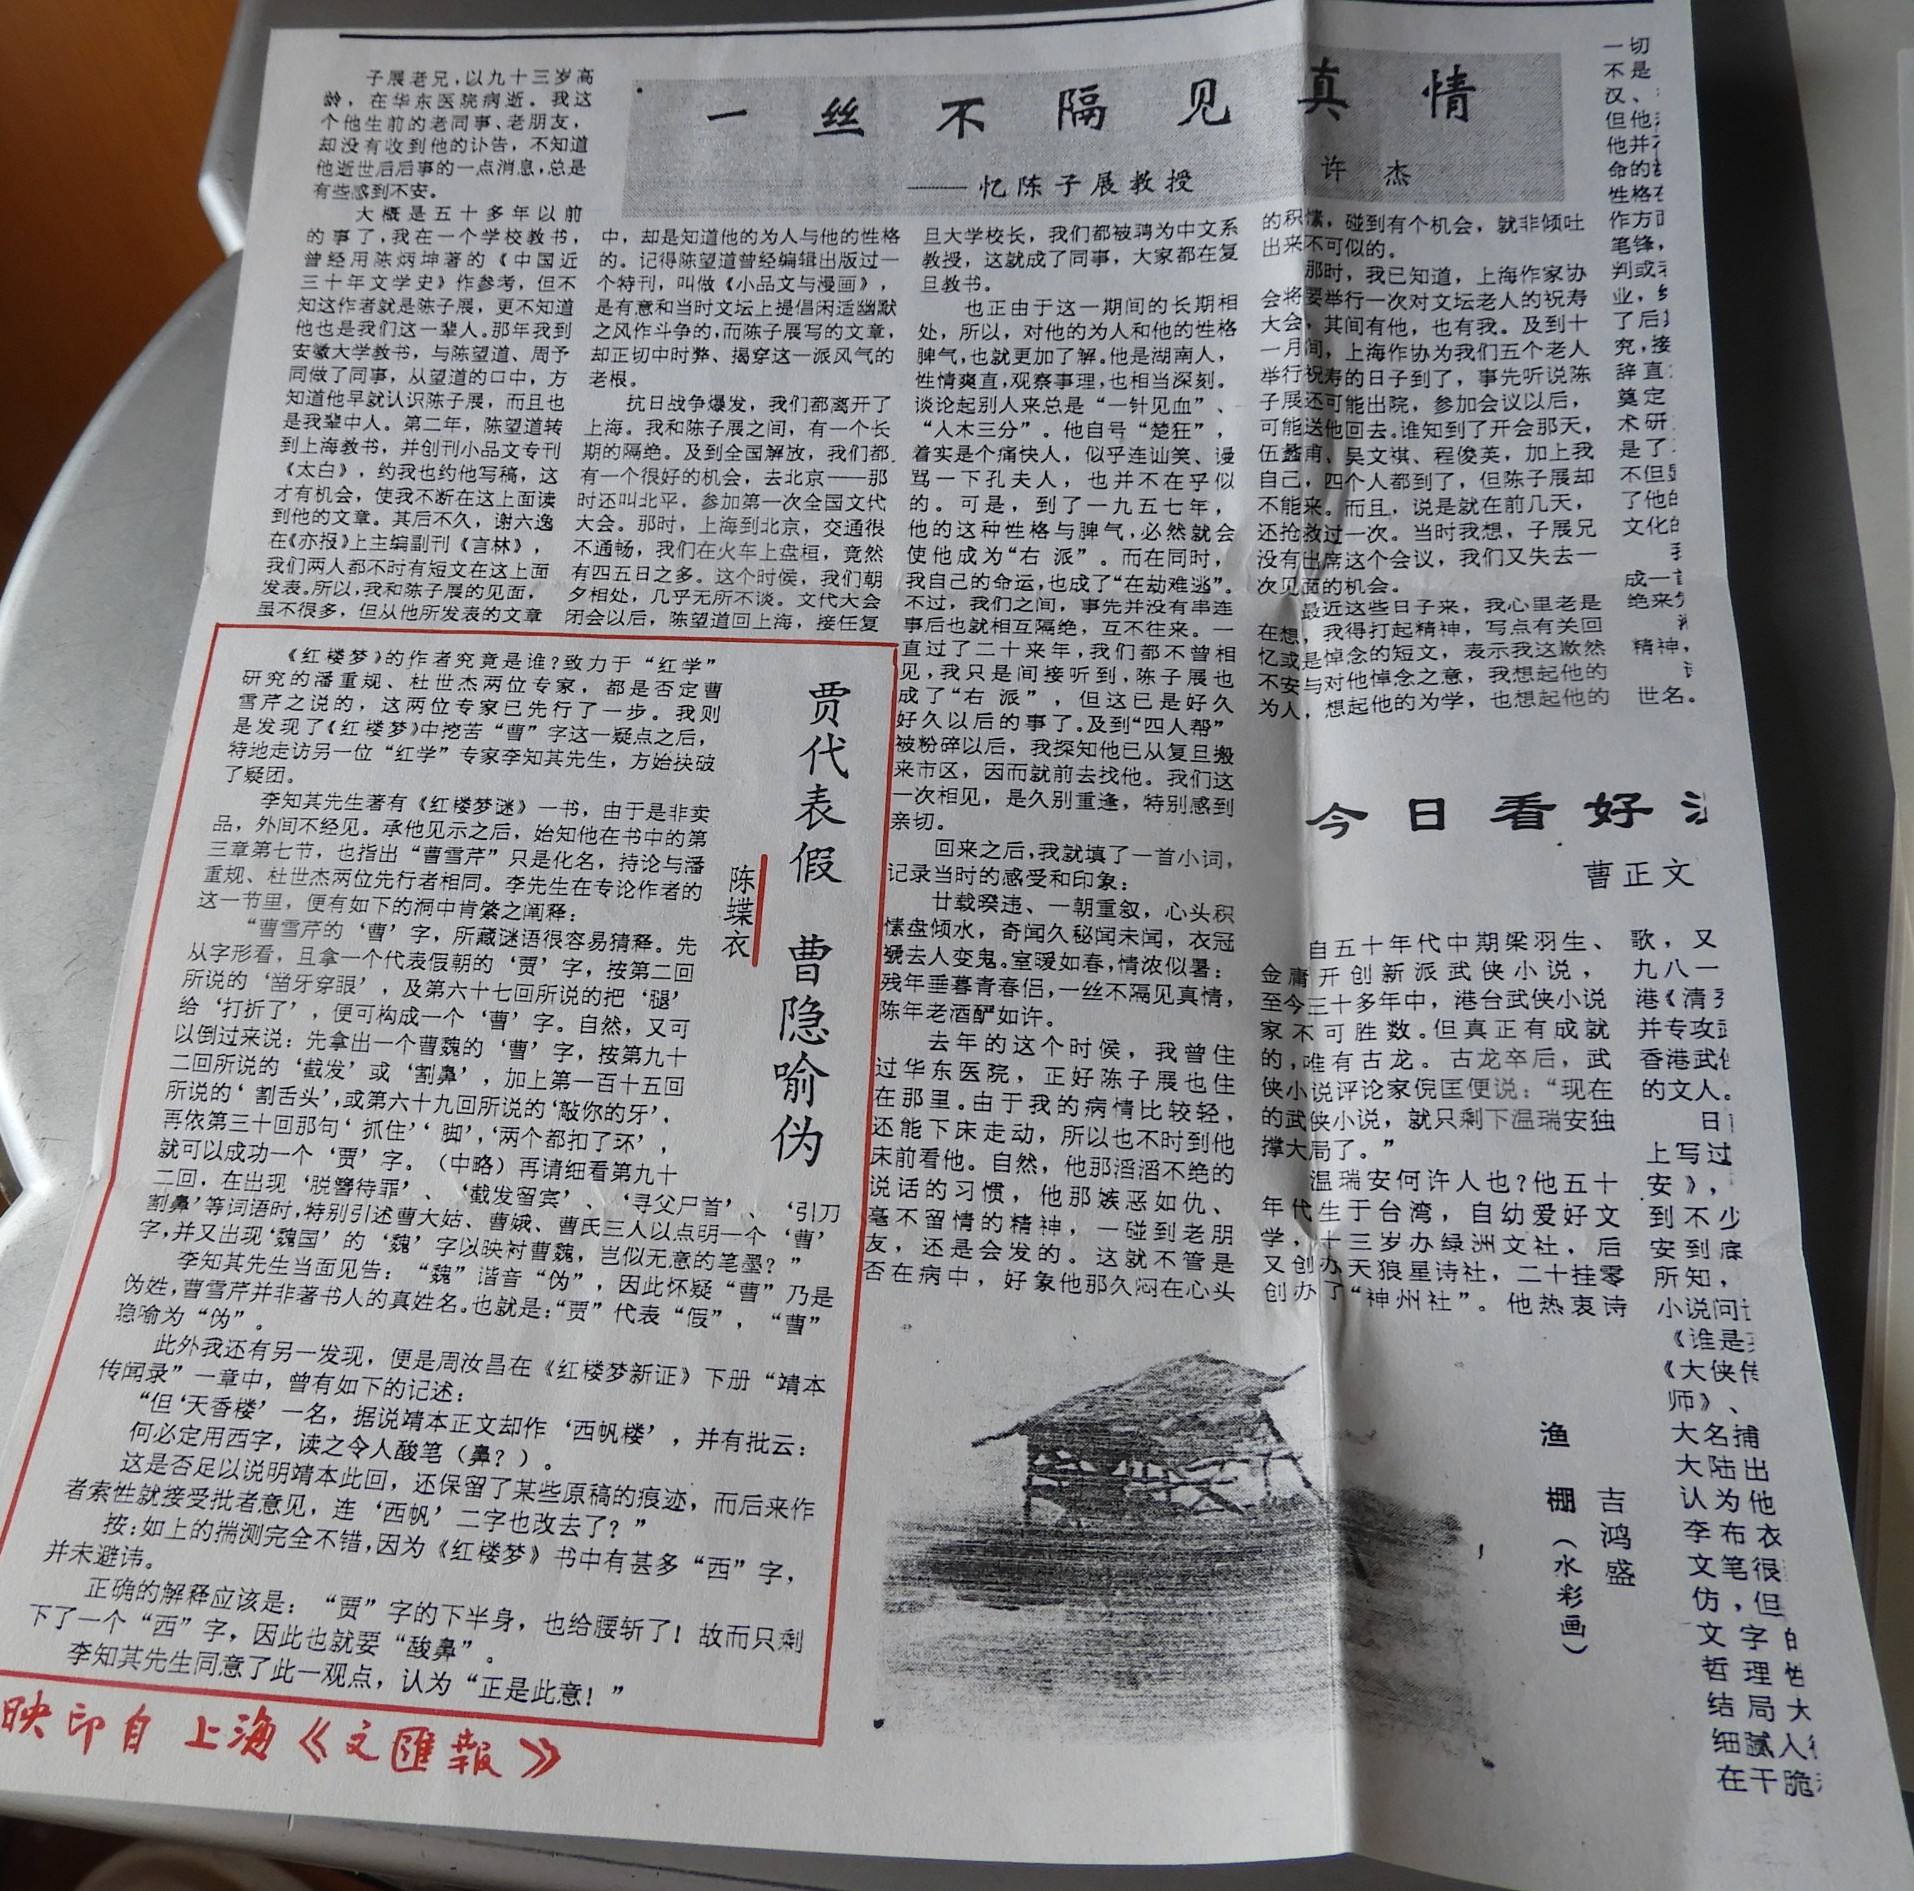 一丝不隔见真情
——忆陈子展教授
许杰
子展老兄，以九十三岁高
龄，在华东医院病逝。我这
个他生前的老同事、老朋友，
却没有收到他的讣告，不知道
他逝世后后事的一点消息，总是
有些感到不安。
大概是五十多年以前
的事了，我在一个学校教书，
曾经用陈炳坤著的《中国近
三十年文学史》作参考，但不
知这作者就是陈子展，更不知道
他也是我们这一辈人。那年我到
安徽大学教书，与陈望道、周予
同做了同事，从望道的口中，方
知道他早就认识陈子展，而且也
是我辈中人。第二年，陈望道转
到上海教书，并创刊小品文专刊
《太白》，约我也约他写稿，这
才有机会，使我不断在这上面读
到他的文章。其后不久，谢六逸
在《亦报》上主编副刊《言林》，
我们两人都不时有短文在这上面
发表。所以，我和陈子展的见面，
虽不很多，但从他所发表的文章
中，却是知道他的为人与他的性格
的。记得陈望道曾经编辑出版过一
个特刊，叫做《小品文与漫画》，
是有意和当时文坛上提倡闲适幽默
之风作斗争的，而陈子展写的文章，
却正切中时弊、揭穿这一派风气的
老根。
抗日战争爆发，我们都离开了
上海。我和陈子展之间，有一个长
期的隔绝。及到全国解放，我们都
有一个很好的机会，去北京——那
时还叫北平，参加第一次全国文代
大会。那时，上海到北京，交通很
不通畅，我们在火车上盘桓，竟然
有四五日之多。这个时候，我们朝
夕相处，几乎无所不谈。文代大会
闭会以后，陈望道回上海，接任复
旦大学校长，我们都被聘为中文系
教授，这就成了同事，大家都在复
旦教书。
也正由于这一期间的长期相
处，所以，对他的为人和他的性格
脾气，也就更加了解。他是湖南人，
性情爽直，观察事理，也相当深刻。
谈论起别人来总是“一针见血”、
“入木三分”。他自号“楚狂”，
着实是个痛快人，似乎连讪笑、谩
骂一下孔夫人，也并不在乎似
的。可是，到了一九五七年，
他的这种性格与脾气，必然就会
使他成为“右派”。而在同时，
我自己的命运，也成了“在劫难逃”。
不过，我们之间，事先并没有串连
事后也就相互隔绝，互不往来。一
直过了二十来年，我们都不曾相
见，我只是间接听到，陈子展也
成了“右派”，但这已是好久
好久以后的事了。及到“四人帮”
被粉碎以后，我探知他已从复旦搬
来市区，因而就前去找他。我们这
一次相见，是久别重逢，特别感到
亲切。
回来之后，我就填了一首小词，
记录当时的感受和印象：
廿载暌违、一朝重叙，心头积
愫盘倾水，奇闻久秘闻未闻，衣冠
褫去人变鬼。室暖如春，情浓似暑：
残年垂暮青春侣，一丝不隔见真情，
陈年老酒酽如许。
去年的这个时候，我曾住
过华东医院，正好陈子展也住
在那里。由于我的病情比较轻，
还能下床走动，所以也不时到他
床前看他。自然，他那滔滔不绝的
说话的习惯，他那嫉恶如仇、
毫不留情的精神，一碰到老朋
友，还是会发的。这就不管是
否在病中，好象他那久闷在心头
的积愫，碰到有个机会，就非倾吐
出来不可似的。
那时，我已知道，上海作家协
会将要举行一次对文坛老人的祝寿
大会，其间有他，也有我。及到十
一月间，上海作协为我们五个老人
举行祝寿的日子到了，事先听说陈
子展还可能出院，参加会议以后，
可能送他回去。谁知到了开会那天，
伍蠡甫、吴文祺、程俊英，加上我
自己，四个人都到了，但陈子展却
不能来。而且，说是就在前几天，
还抢救过一次。当时我想，子展兄
没有出席这个会议，我们又失去一
次见面的机会。
最近这些日子来，我心里老是
在想，我得打起精神，写点有关回
忆或是悼念的短文，表示我这歉然
不安与对他悼念之意，我想起他的
为人，想起他的为学，也想起他的
一切
不是
汉、
但他
他并
命的
性格
作方
笔锋，
判或
业，
了后
究，接
辞直
奠定
术研
是了
不但
了他的
文化的
成一
绝来
精神，
世名。
贾代表假 曹隐喻伪
陈蝶衣
《红楼梦》的作者究竟是谁？致力于“红学”
研究的潘重规、杜世杰两位专家，都是否定曹
雪芹之说的，这两位专家已先行了一步。我则
是发现了《红楼梦》中挖苦“曹”字这一疑点之后，
特地走访另一位“红学”专家李知其先生，方始抉破
了疑团。
李知其先生著有《红楼梦谜》一书，由于是非卖
品，外间不经见。承他见示之后，始知他在书中的第
三章第七节，也指出“曹雪芹”只是化名，持论与潘
重规、杜世杰两位先行者相同。李先生在专论作者的
这一节里，便有如下的洞中肯綮之阐释：
“曹雪芹的‘曹’字，所藏谜语很容易猜释。先
从字形看，且拿一个代表假朝的‘贾’字，按第二回
所说的‘凿牙穿眼’，及第六十七回所说的把‘腿’
给‘打折了’，便可构成一个‘曹’字。自然，又可
以倒过来说：先拿出一个曹魏的‘曹’字，按第九十
二回所说的‘截发’或‘割鼻’，加上第一百十五回
所说的‘割舌头’，或第六十九回所说的‘敲你的牙’，
再依第三十回那句‘抓住’‘脚’，‘两个都扣了环’，
就可以成功一个‘贾’字。（中略）再请细看第九十
二回，在出现‘脱簪待罪’、‘截发留宾’、‘寻父尸首’、‘引刀
割鼻’等词语时，特别引述曹大姑、曹娥、曹氏三人以点明一个‘曹’
字，并又出现‘魏国’的‘魏’字以映衬曹魏，岂似无意的笔墨？”
李知其先生当面见告：“魏”谐音“伪”，因此怀疑“曹”乃是
伪姓，曹雪芹并非著书人的真姓名。也就是：“贾”代表“假”，“曹”
稳喻为“伪”。
此外我还有另一发现，便是周汝昌在《红楼梦新证》下册“靖本
传闻录”一章中，曾有如下的记述：
“但‘天香楼’一名，据说靖本正文却作‘西帆楼’，并有批云：
何必定用西字，读之令人酸笔（鼻？）。
这是否足以说明靖本此回，还保留了某些原稿的痕迹，而后来作
者索性就接受批者意见，连‘西帆’二字也改去了？”
按：如上的揣测完全不错，因为《红楼梦》书中有甚多“西”字，
并未避讳。
正确的解释应该是：“贾”字的下半身，也给腰斩了！故而只剩
下了一个“西”字，因此也就要“酸鼻”。
李知其先生同意了此一观点，认为“正是此意！”
映印自 上海《文匯報》
今日看好
曹正文
自五十年代中期梁羽生、
金庸开创新派武侠小说，
至今三十多年中，港台武侠小说
家不可胜数。但真正有成就
的，唯有古龙。古龙卒后，武
侠小说评论家倪匡便说：“现在
的武侠小说，就只剩下温瑞安独
撑大局了。”
温瑞安何许人也？他五十
年代生于台湾，自幼爱好文
学，十三岁办绿洲文社，后
又创办天狼星诗社，二十挂零
创办了“神州社”。他热衷诗
歌，又
九八一
港《清
并专攻
香港武
的文人。
日
上写过
安》，
到不少
安到底
所知，
小说问
《谁是
《大侠传
师》、
大名捕
大陆出
认为他
李布衣
文笔很
仿，但
文字的
哲理性
结局大
细腻人
在干脆
渔棚（水彩画）
吉鸿盛